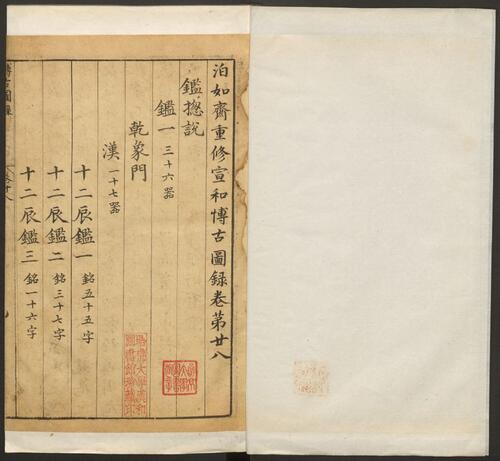 泊如齋重修宣和博古圖録卷第廿八
鑑揔說
鑑一 三十六器
乾象門
漢 一十七器
十二辰鑑一 銘五十五字
十二辰鑑二 銘三十七字
十二辰鑑三 銘一十六字